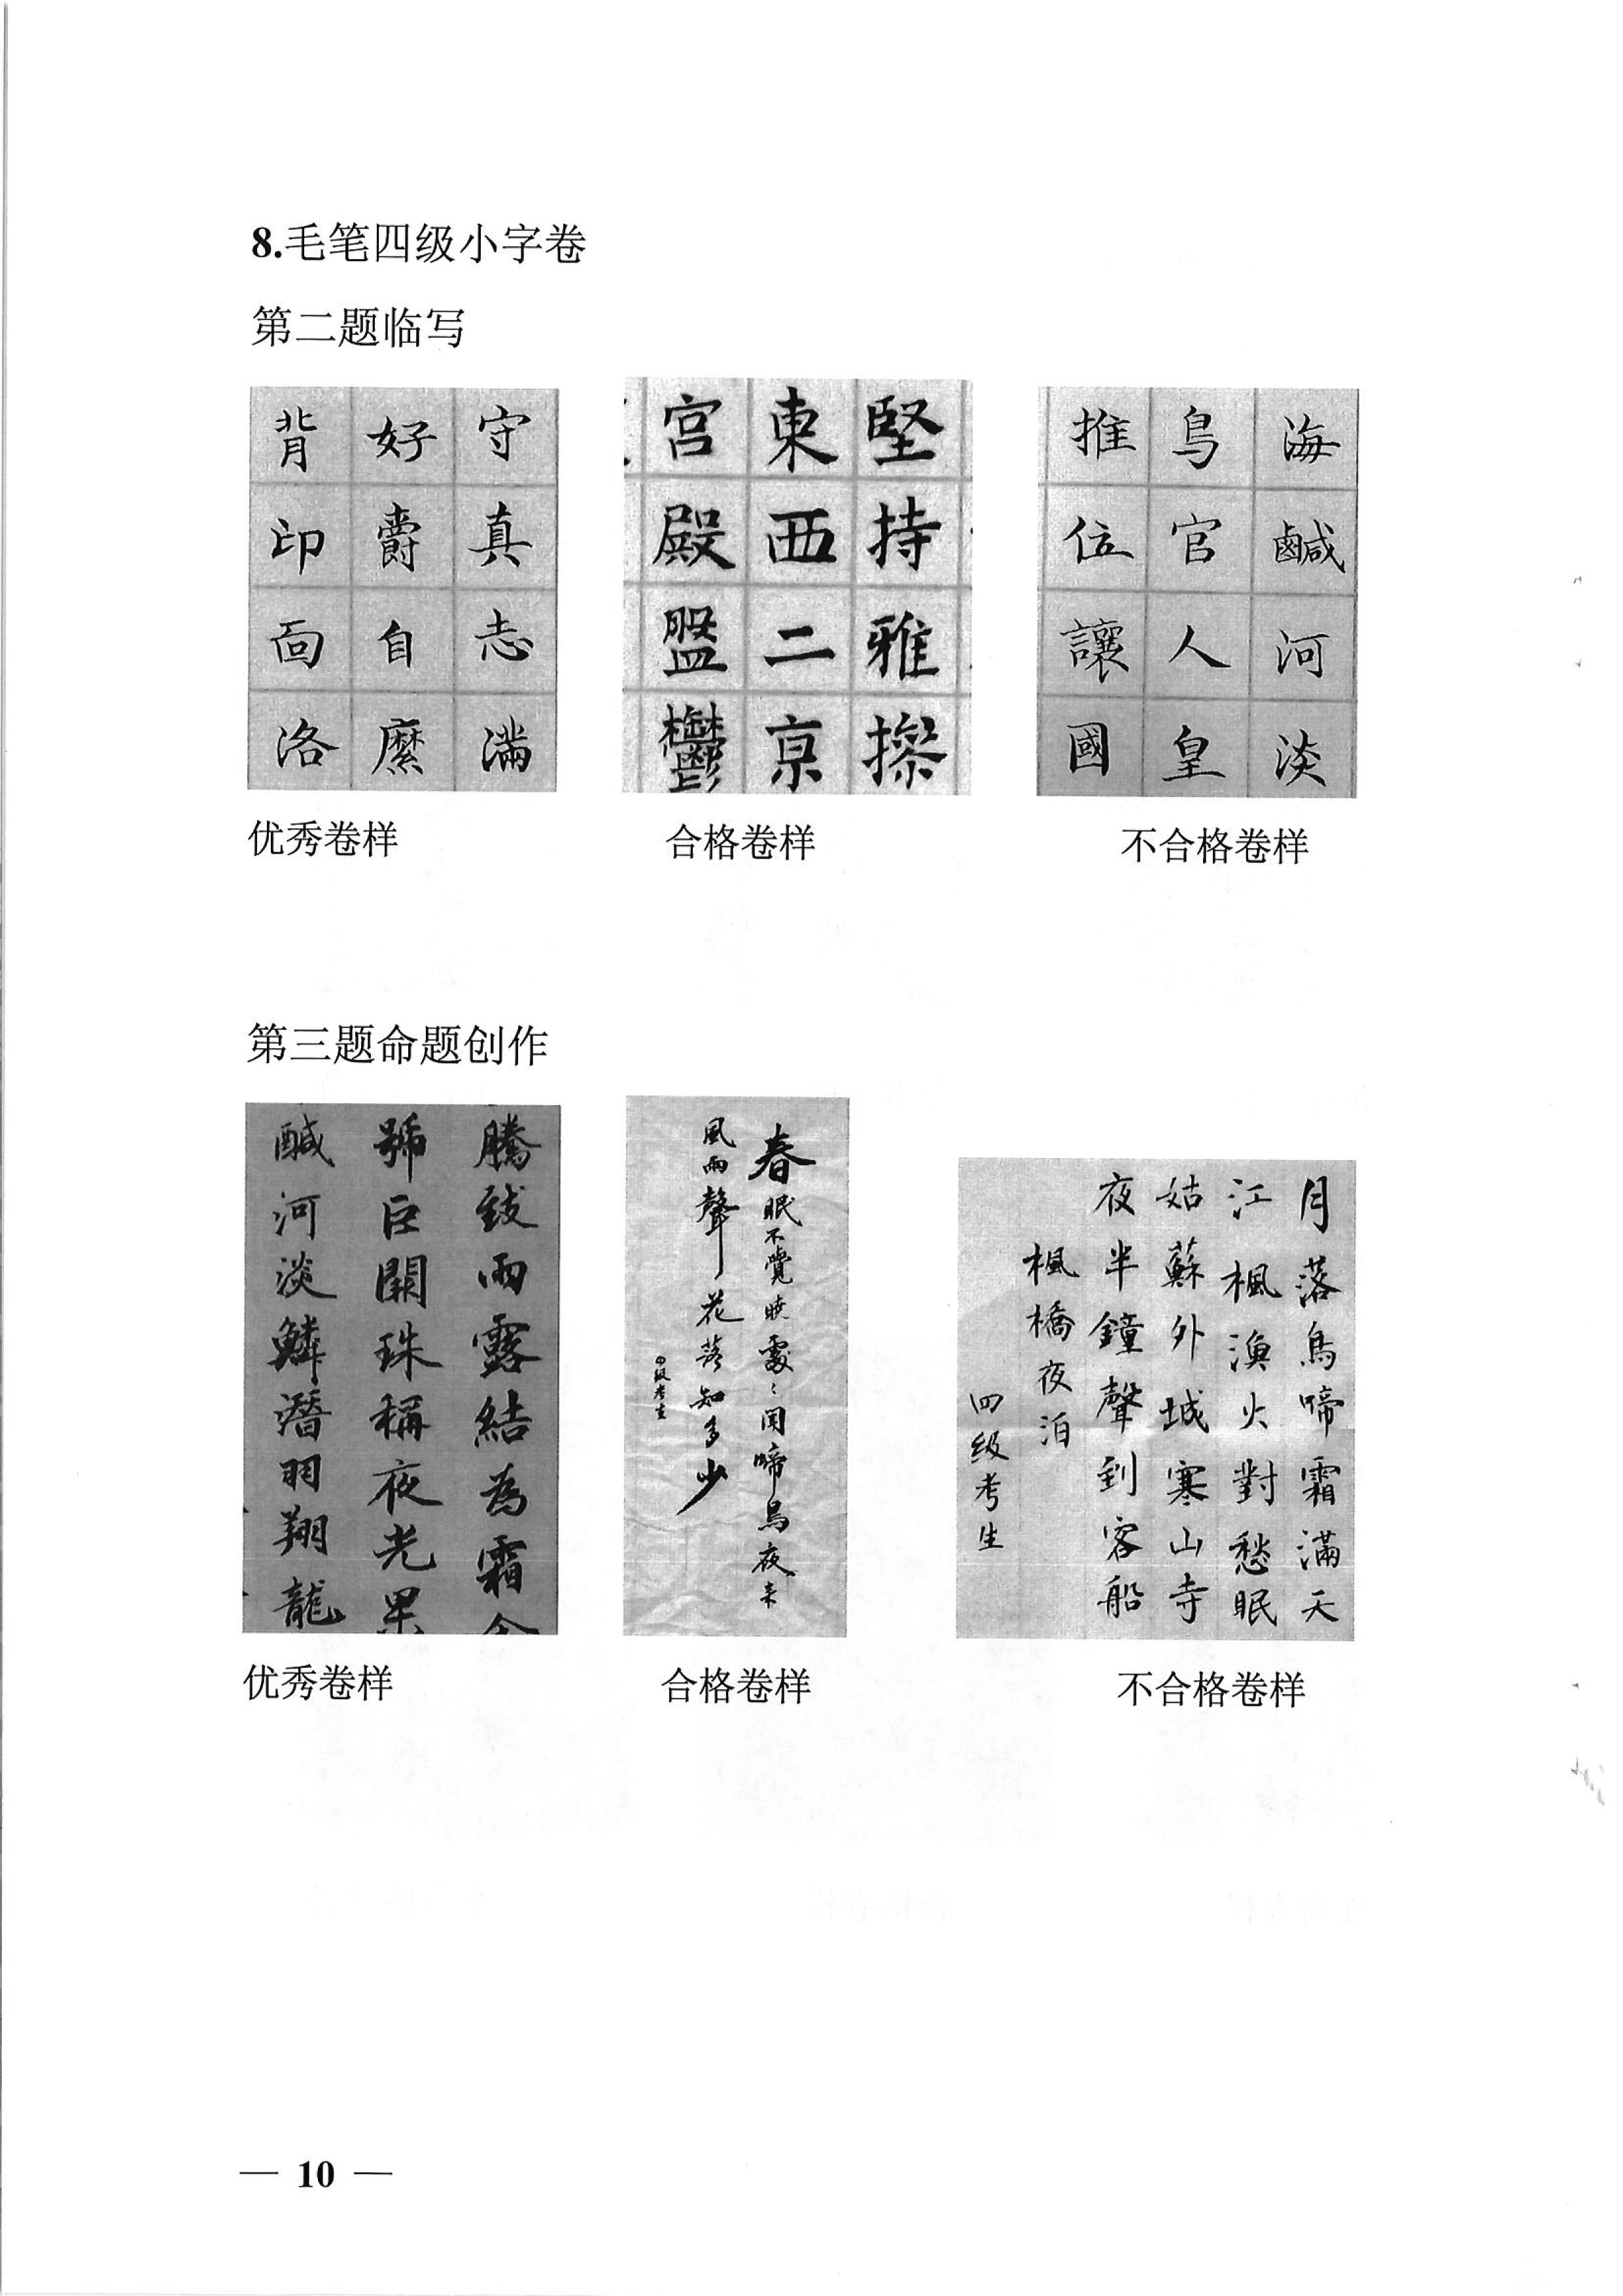 8.毛笔四级小字卷
第二题临写
守真志滿
好爵自縻
背印面洛
堅持雅操
東西二京
宮殿盤鬱
海鹹河淡
鳥官人皇
推位讓國
优秀卷样
合格卷样
不合格卷样
第三题命题创作
騰致雨露結為霜金
號巨闕珠稱夜光果
鹹河淡鱗潛羽翔龍
春眠不覺曉處〻聞啼鳥夜来
風雨聲花落知多少
四级考生
月落烏啼霜滿天
江楓漁火對愁眠
姑蘇外城寒山寺
夜半鐘聲到客船
楓橋夜泊
四级考生
优秀卷样
合格卷样
不合格卷样
— 10 —